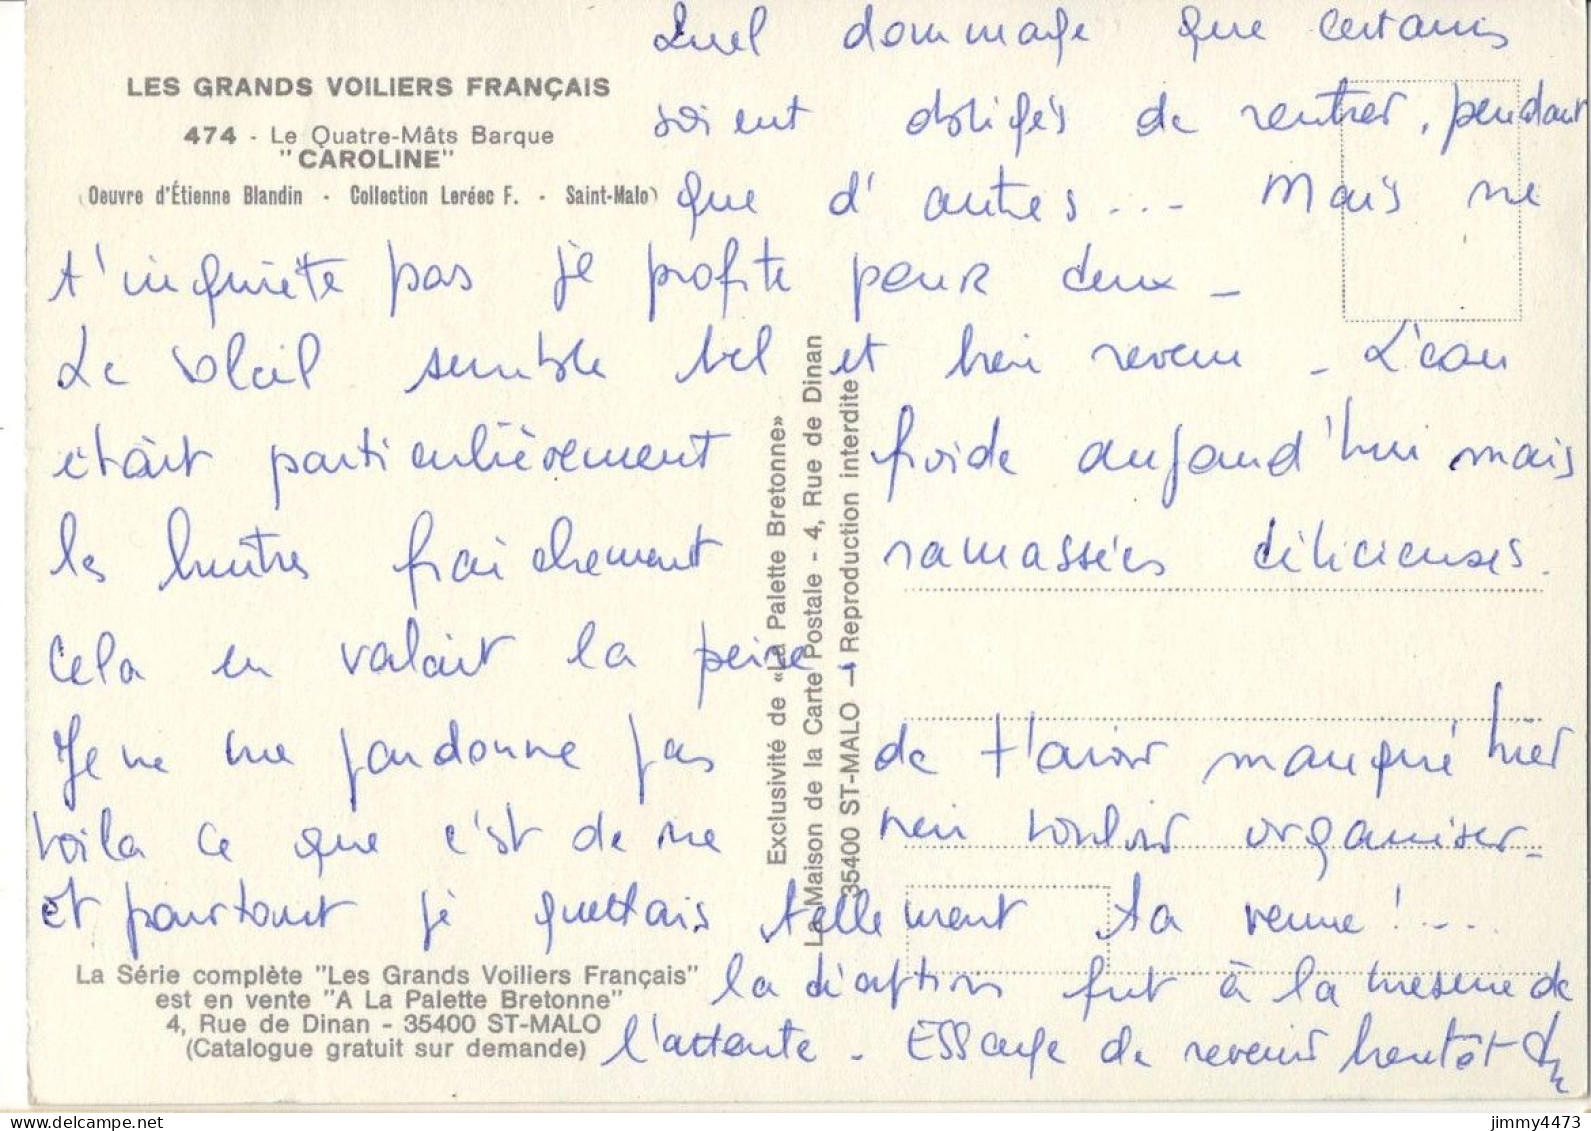 Quel dommage que certains
LES GRANDS VOILIERS FRANÇAIS
474 - Le Quatre-Mâts Barque
"CAROLINE"
(Oeuvre d'Étienne Blandin - Collection Leréec F. - Saint-Malo)
soient obligés de rentrer, pendant
que d'autres... Mais ne
t'inquiète pas je profite pour deux -
Le soleil semble bel et bien revenu - L'eau
était particulièrement froide aujourd'hui mais
les huîtres fraîchement ramassées délicieuses.
Cela en valait la peine.
Je ne me pardonne pas de t'avoir manqué hier
voila ce que c'est de ne rien vouloir organiser -
et pourtant je guettais tellement ta venue !....
la déception fut à la mesure de
l'attente - Essaye de revenir bientôt
Exclusivité de «La Palette Bretonne»
La Maison de la Carte Postale - 4, Rue de Dinan
35400 ST-MALO — Reproduction interdite
La Série complète "Les Grands Voiliers Français"
est en vente "A La Palette Bretonne"
4, Rue de Dinan - 35400 ST-MALO
(Catalogue gratuit sur demande)
jimmy4473